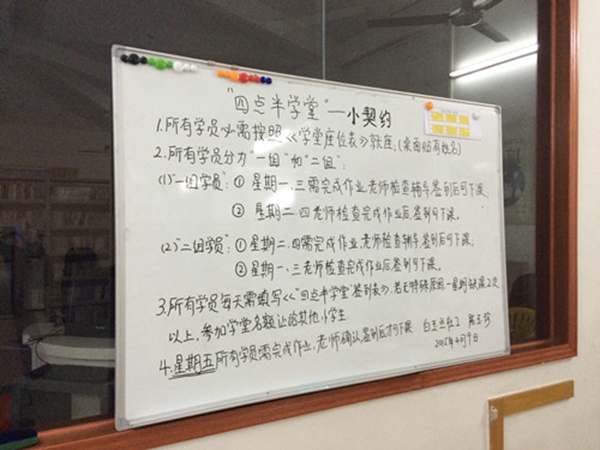 "四点半学堂"—小契约
1.所有学员必需按照<<学堂座位表>>就座.(桌面贴有姓名)
2.所有学员分为"一组"和"二组":
(1)"一组学员":① 星期一.三需完成作业,老师检查辅导,签到后可下课.
② 星期二.四老师检查完成作业后,签到可下课.
(2)"二组学员":① 星期二.四需完成作业,老师检查辅导,签到后可下课.
② 星期一.三老师检查完成作业后签到可下课.
3.所有学员每天需填写<<"四点半学堂"签到表>>,若无特殊原因一星期缺课2次
以上,参加学堂名额让给其他小学生
4.星期五所有学员需完成作业,老师确认,签到后才可下课 白玉兰社工 陈玉珍
2015年4月9日